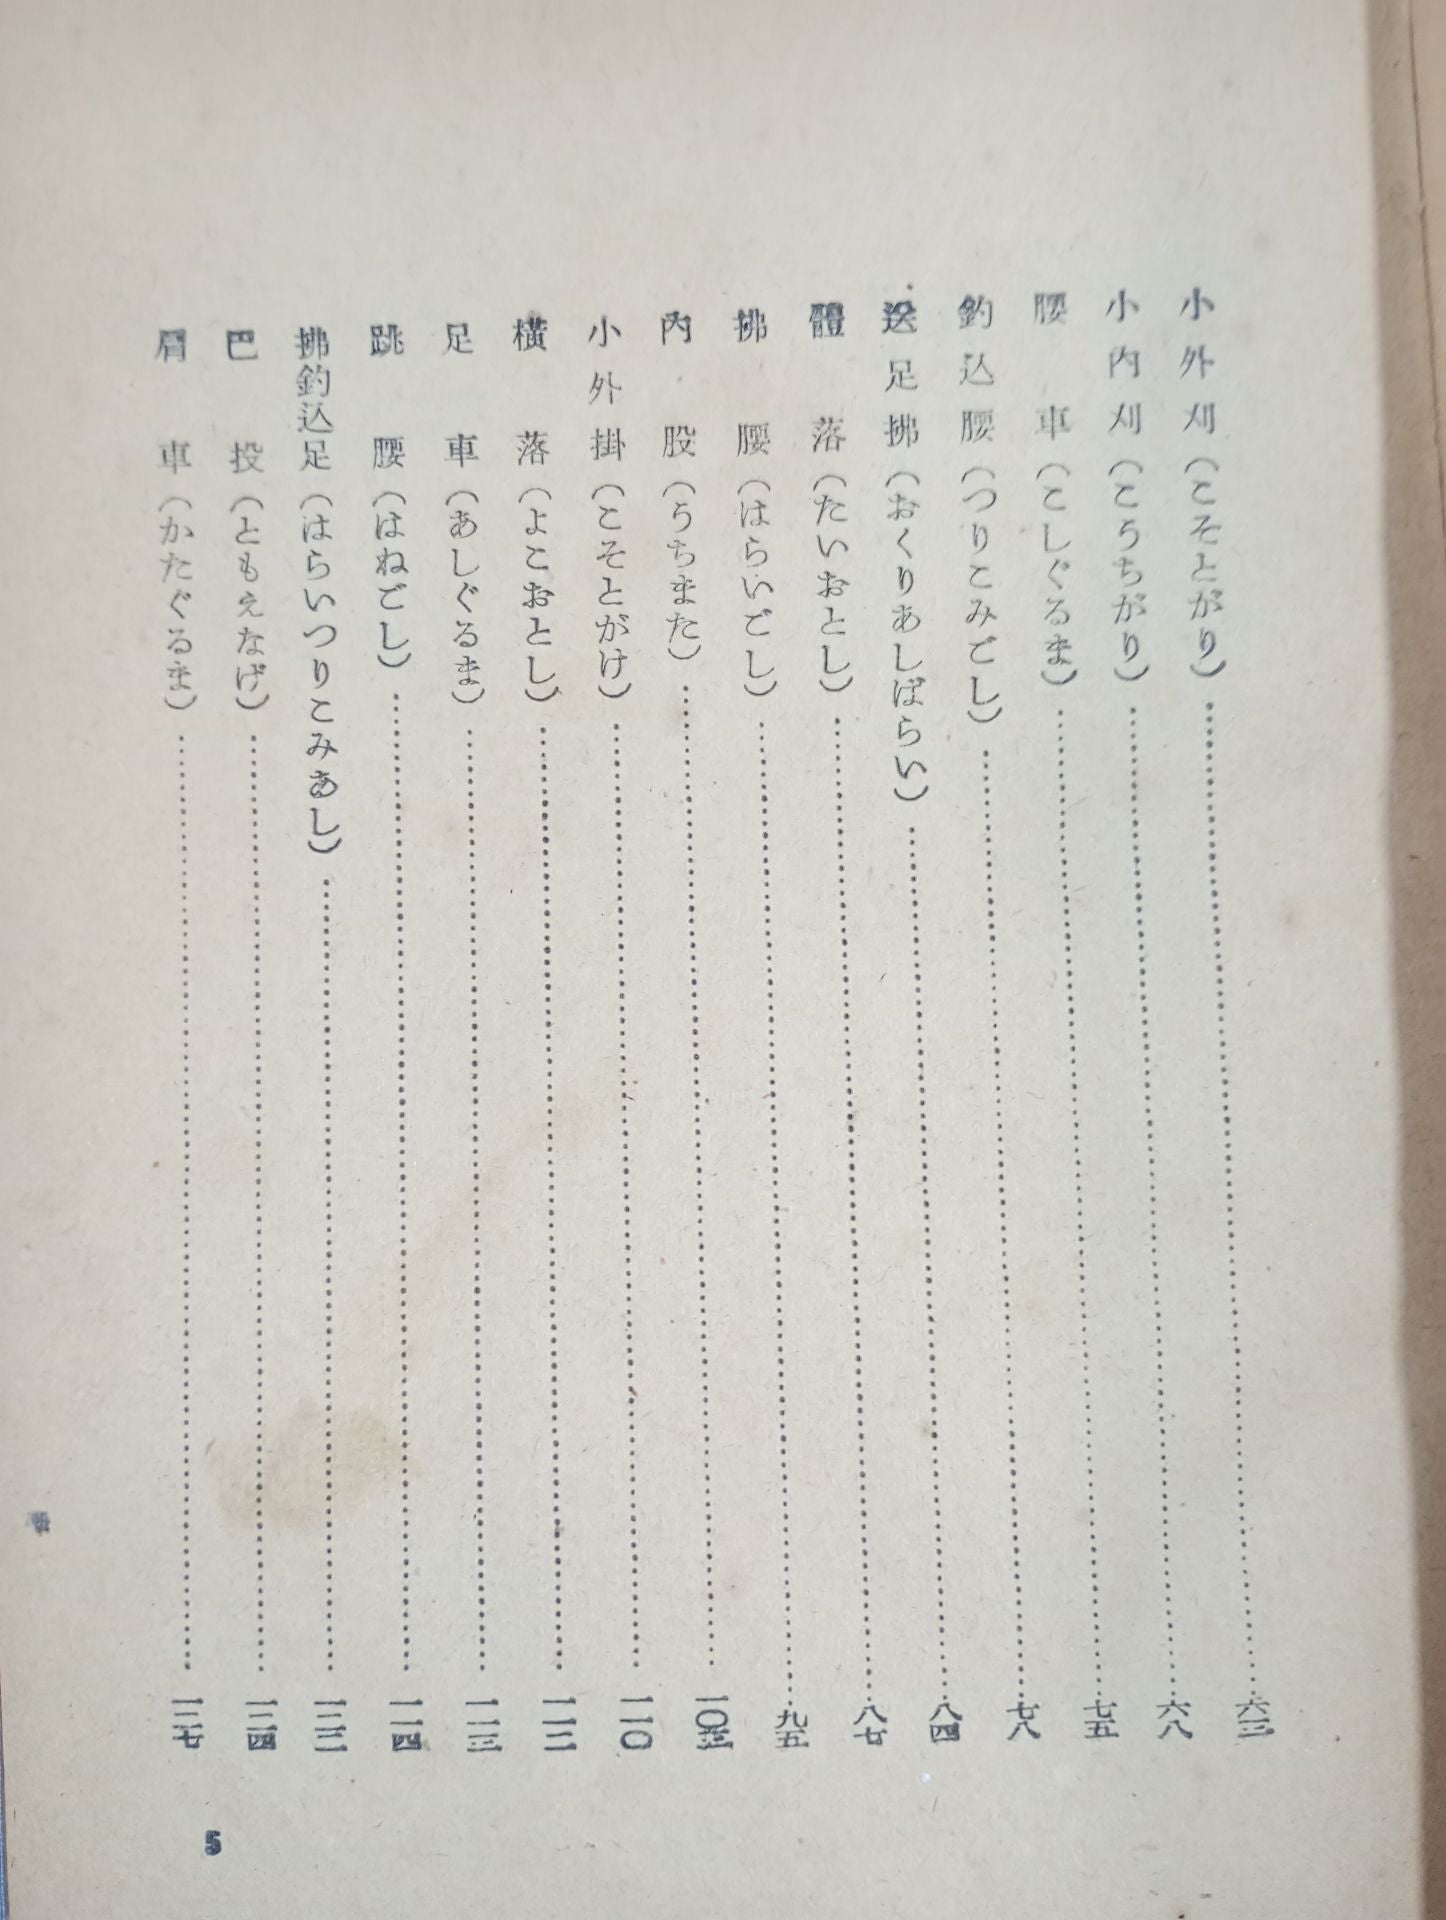 小外刈（こそとがり）……六三
小内刈（こうちがり）……六八
腰車（こしぐるま）……七五
釣込腰（つりこみごし）……七八
送足拂（おくりあしばらい）……八四
體落（たいおとし）……八七
拂腰（はらいごし）……九五
內股（うちまた）……一〇三
小外掛（こそとがけ）……一一〇
橫落（よこおとし）……一一二
足車（あしぐるま）……一一三
跳腰（はねごし）……一一四
拂釣込足（はらいつりこみあし）……一二二
巴投（ともえなげ）……一二四
肩車（かたぐるま）……一二七
5